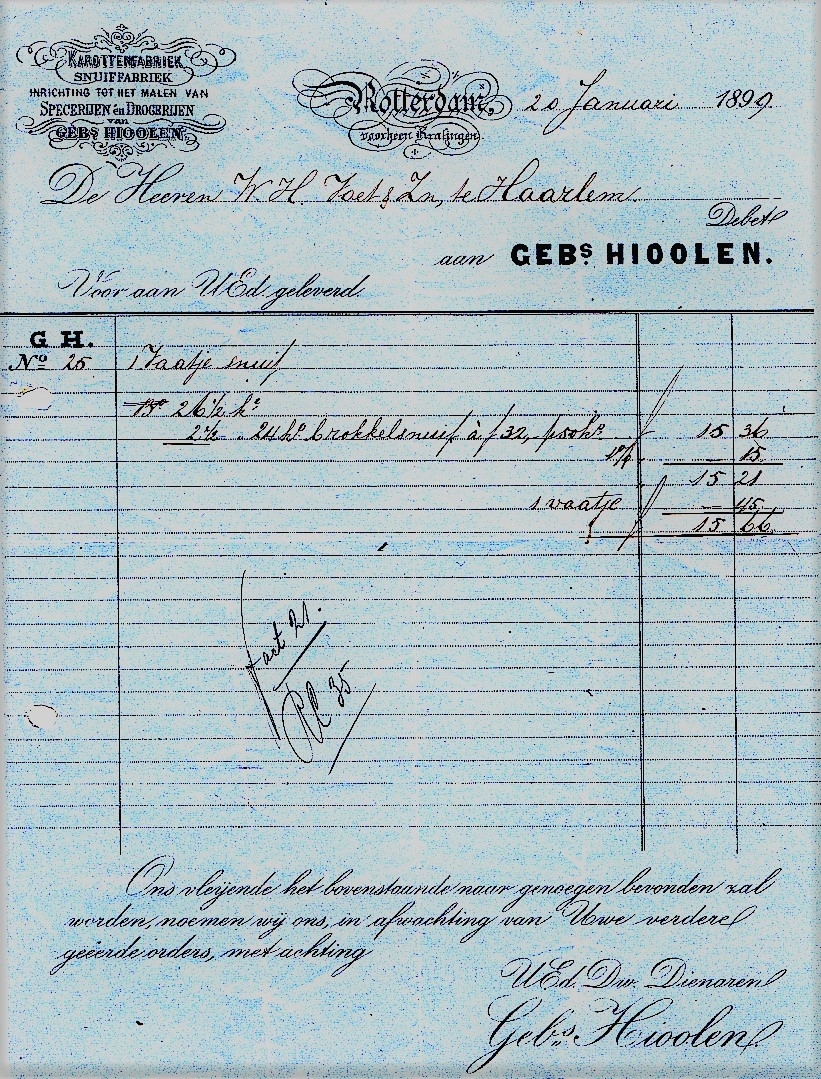 KAROTTENFABRIEK
SNUIFFABRIEK
INRICHTING TOT HET MALEN VAN
SPECERIJEN én DROGERIJEN
van
GEBs HIOOLEN.
Rotterdam, 20 Januari 1899
voorheen Kralingen.
De Heeren W. H. Voet & Zn, te Haarlem.
Debet
aan GEBs. HIOOLEN.
Voor aan UEd. geleverd.
G H.
No 25 1 Vaatje snuif
26 1/2 ho
2 1/2 . 24 ho brokkelsnuif à f 32, p 50 ho 15 36
1% — 15
15 21
1 vaatje — 45
15 66
fact 21.
35
Ons vleijende het bovenstaande naar genoegen bevonden zal
worden, noemen wij ons, in afwachting van Uwe verdere
geëerde orders, met achting
UEd. Dw. Dienaren
Gebs. Hioolen.